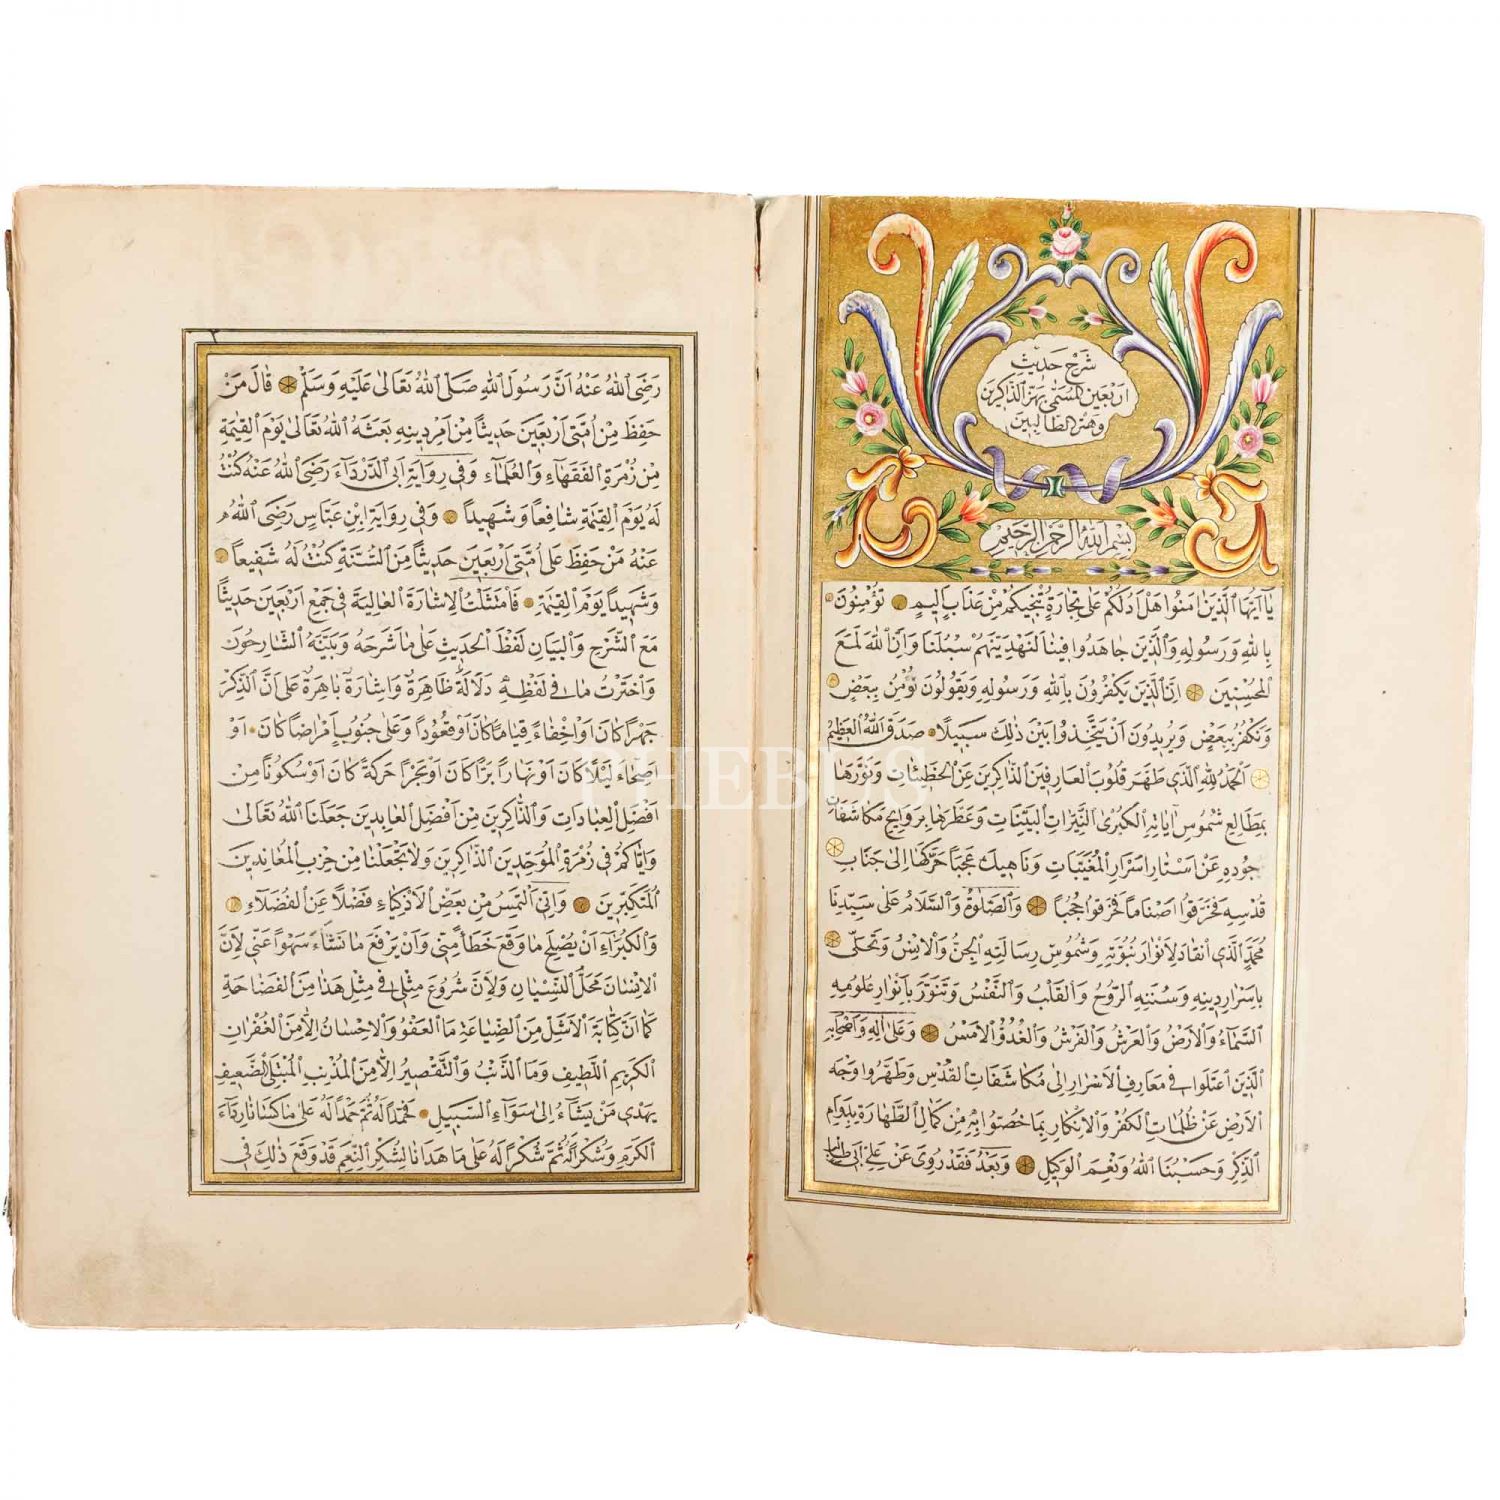 شرح حديث
اربعين المسمى بهز الذاكرين
وهنر الطالبين
بسم الله الرحمن الرحيم
يا ايها الذين امنوا هل ادلكم على تجارة تنجيكم من عذاب اليم تؤمنون
بالله ورسوله والذين جاهدوا فينا لنهدينهم سبلنا وان الله لمع
المحسنين ان الذين يكفرون بالله ورسوله ويقولون نؤمن ببعض
ونكفر ببعض ويريدون ان يتخذوا بين ذلك سبيلا صدق الله العظيم
الحمد لله الذي طهر قلوب العارفين الذاكرين عن الخطيئات ونورها
بمطالع شموس اياته الكبرى النيرات البينات وعطرها بروايح مكاشفات
جوده عن استار اسرار المغيبات وناهيك عجبا حركها الى جناب
قدسه فخرقوا اصناما فخرقوا حجبا والصلوة والسلام على سيدنا
محمد الذي انقاد لانوار نبوته وشموس رسالته الجن والانس وتحلى
باسرار دينه وسننه الروح والقلب والنفس وتنور بانوار علومه
السماء والارض والعرش والفرش والغدو الامس وعلى اله واصحابه
الذين اعتلوا في معارف الاسرار الى مكاشفات القدس وطهروا وجه
الارض عن ظلمات الكفر والانكار بما خصتوا به من كمال الطهارة بدوام
الذكر وحسبنا الله ونعم الوكيل وبعد فقد روى عن علي ابى طالب
رضى الله عنه ان رسول الله صلى الله تعالى عليه وسلم قال من
حفظ من امتى اربعين حديثا من امر دينه بعثه الله تعالى يوم القيمة
من زمرة الفقهاء والعلماء وفى رواية ابى الدرداء رضى الله عنه كنت
له يوم القيمة شافعا وشهيدا وفى رواية ابن عباس رضى الله
عنه من حفظ على امتى اربعين حديثا من السنة كنت له شفيعا
وشهيدا يوم القيمة فامتثلت الاشارة العالية فى جمع اربعين حديثا
مع الشرح والبيان لفظ الحديث على ما شرحه وبينه الشارحون
واخترت ما فى لفظه دلالة ظاهرة واشارة باهرة على ان الذكر
جهرا كان او اخفاء قياما كان او قعودا وعلى جنوب امراضا كان او
اصحاء ليلا كان او نهارا برا كان او بحرا حركة كان او سكونا من
افضل العبادات والذاكرين من افضل العابدين جعلنا الله تعالى
واياكم فى زمرة الموحدين الذاكرين ولا تجعلنا من حزب المعاندين
المتكبرين وانى التمس من بعض الاذكياء فضلا عن الفضلاء
والكبراء ان يصلح ما وقع خطأ منى وان يرفع ما نشاء سهوا عنى لان
الانسان محل النسيان ولان شروع مثلى فى مثل هذا من الفضاحة
كما ان كتابة الامثل من الضياعة ما العفو والاحسان الا من الغفران
الكريم اللطيف وما الذنب والتقصير الا من المذنب المبتلى الضعيف
يهدى من يشاء الى سواء السبيل فحمدا له ثم حمدا له على ما كسانا رداء
الكرم وشكرا له ثم شكرا له على ما هدانا لشكر النعم قد وقع ذلك فى
PHEBUS